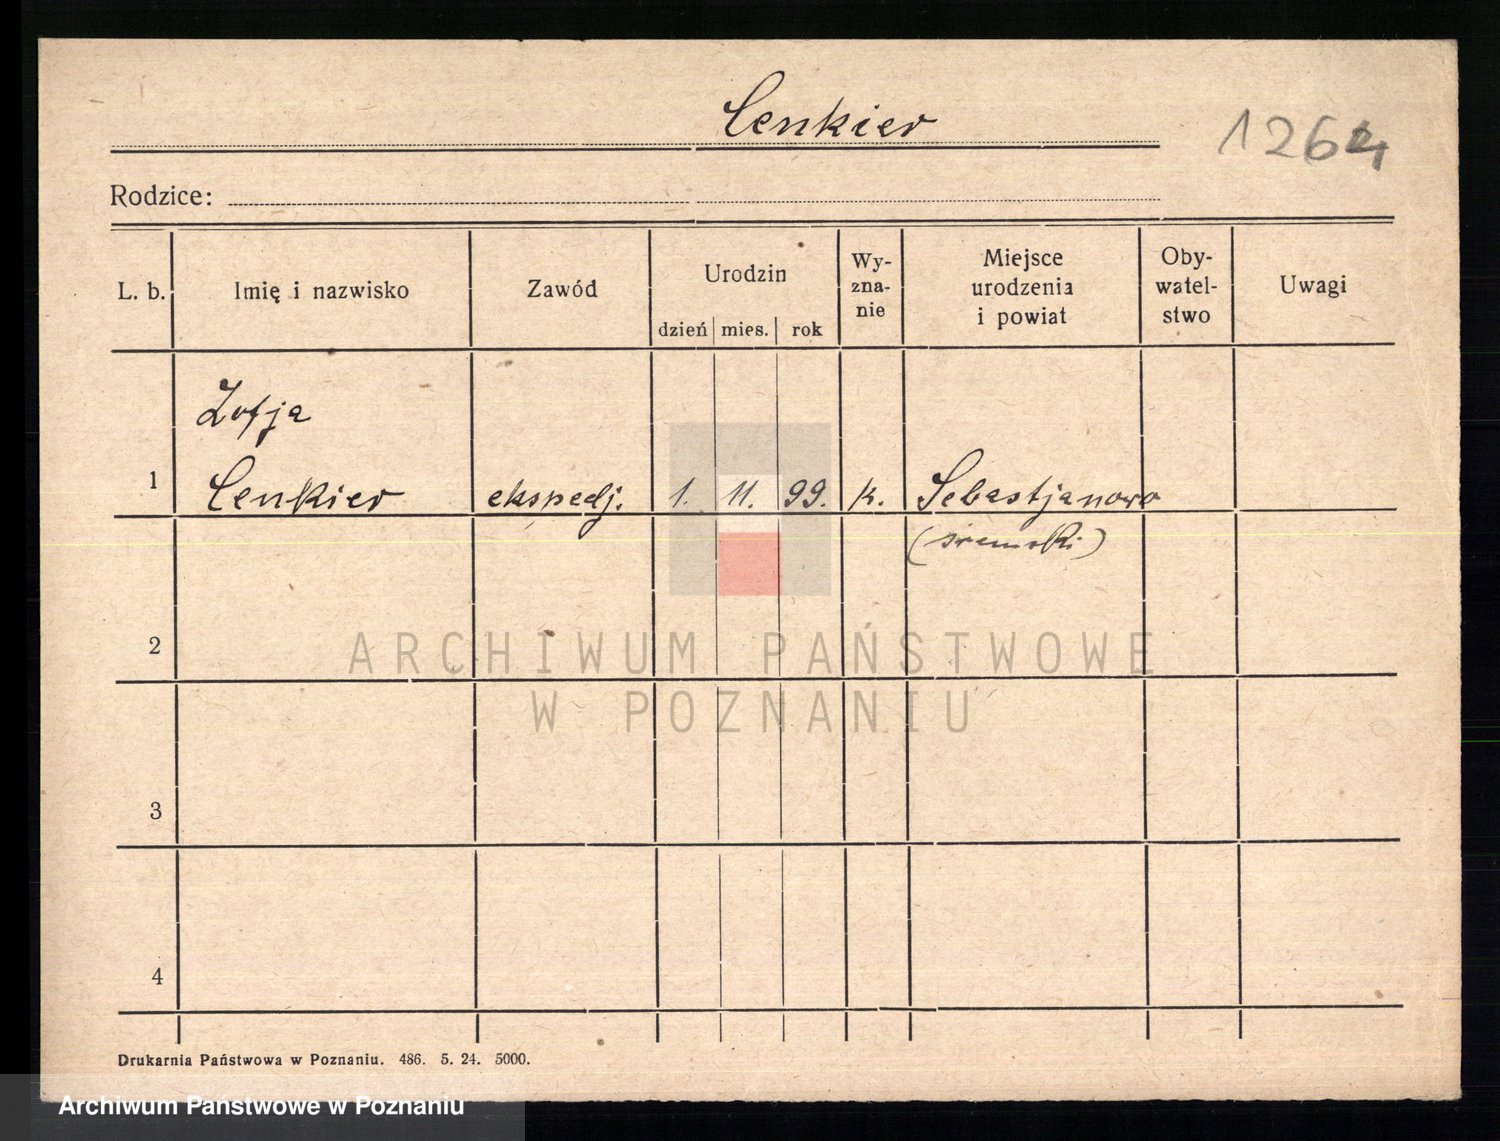 Cenkier
1264
Rodzice:
L. b. Imię i nazwisko Zawód Urodzin dzień mies. rok Wy-zna-nie Miejsce urodzenia i powiat Oby-watel-stwo Uwagi
Zofja
1 Cenkier ekspedj. 1. 11. 99. k. Sebastjanowo
(śremski)
2
ARCHIWUM PAŃSTWOWE
W POZNANIU
3
4
Drukarnia Państwowa w Poznaniu. 486. 5. 24. 5000.
Archiwum Państwowe w Poznaniu